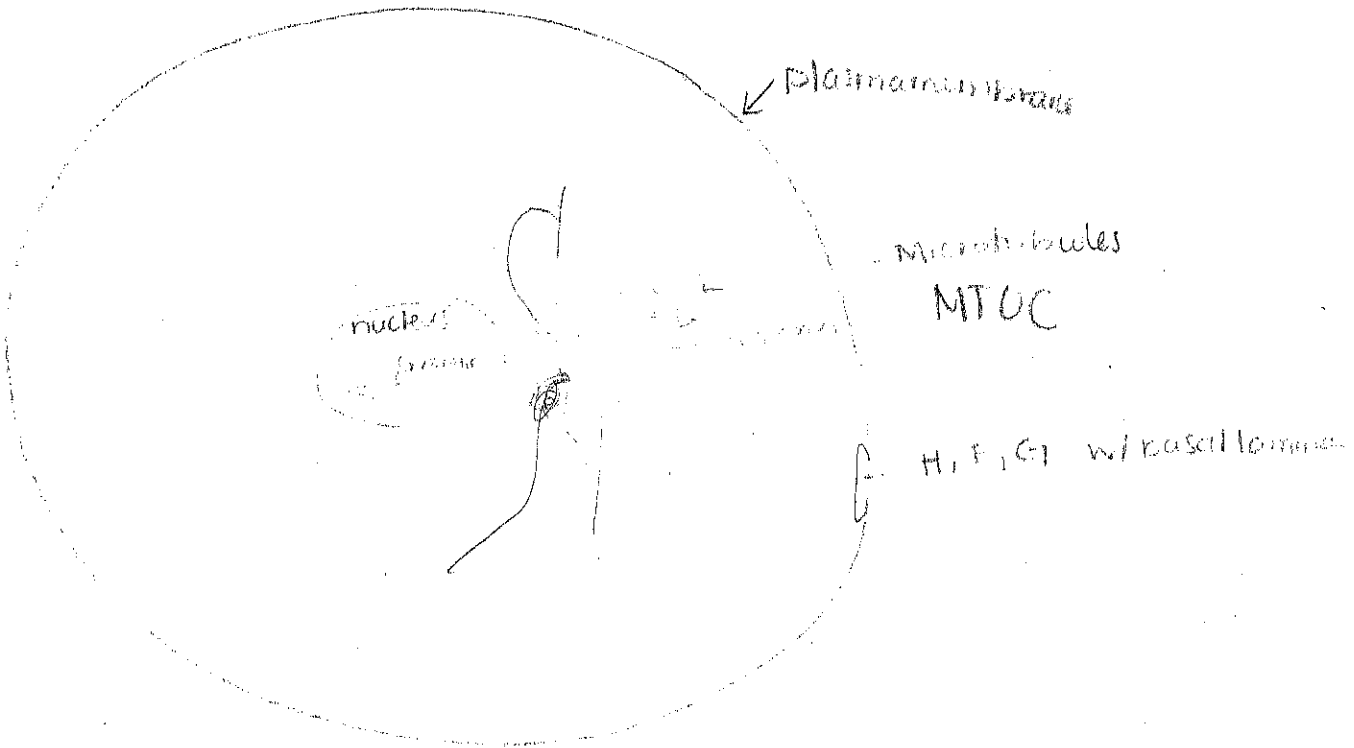 plasmamembrane
Microtubules
MTOC
nucleus
H, F, G, w/ basal lamina